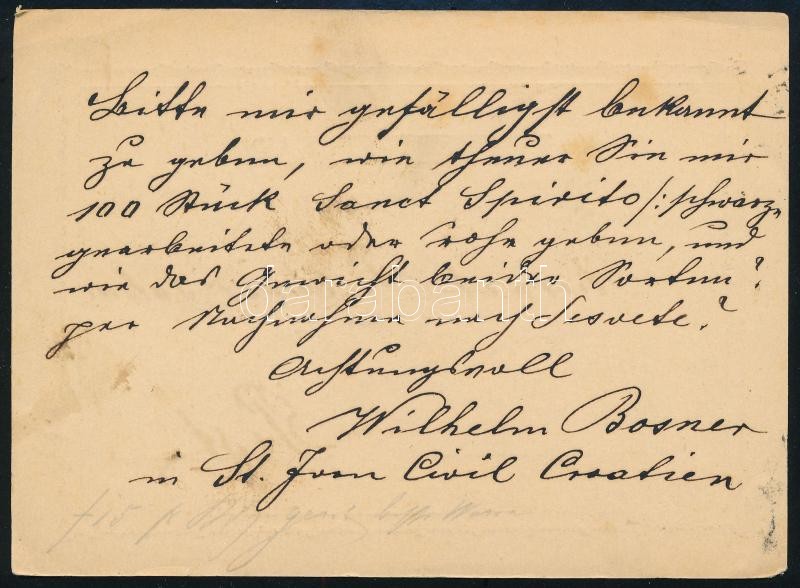 Bitte mir gefälligst bekannt
zu geben, wie theuer Sie mir
100 Stück Sanct Spirito /: schwarze
gearbeitete oder rohe geben, und
wie das Gewicht beider Sorten?
per Nachnahme nach Sesvete?
Achtungsvoll
Wilhelm Bosner
in St. Ivan Civil Croatien
darabanth